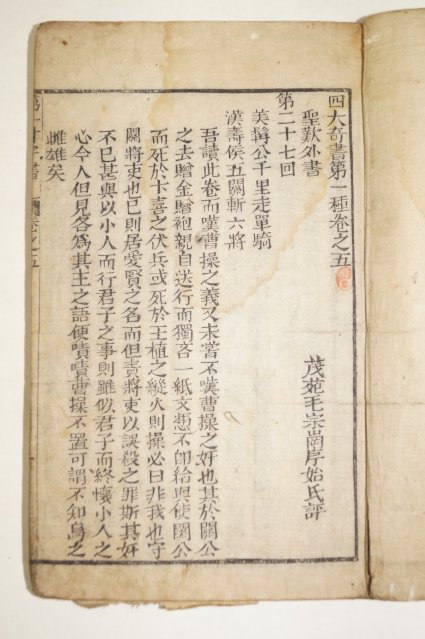 四大奇書第一種卷之五
聖歎外書
茂苑毛宗崗序始氏評
第二十七回
美髯公千里走單騎
漢壽侯五關斬六將
吾讀此卷而嘆曹操之義又未嘗不嘆曹操之奸也其於關公
之去贈金贈袍親自送行而獨吝一紙文憑不卽給與使關公
而死於卞喜之伏兵或死於王植之縱火則操必曰非我也守
關將吏也已則居愛賢之名而但責將吏以誤殺之罪斯其奸
不已甚與以小人而行君子之事則雖似君子而終懷小人之
心今人但見各爲其主之語便嘖嘖曹操不置可謂不知烏之
雌雄矣